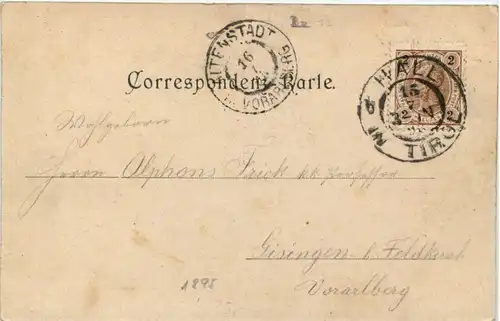 ALTENSTADT
16
VORARLBERG
2
2
HALL
15
7
IN TIROL
Correspondenz-Karte.
Wohlgeboren
Herrn Alphons Frick k.k. Professor
Gisingen b. Feldkirch
Vorarlberg
1898